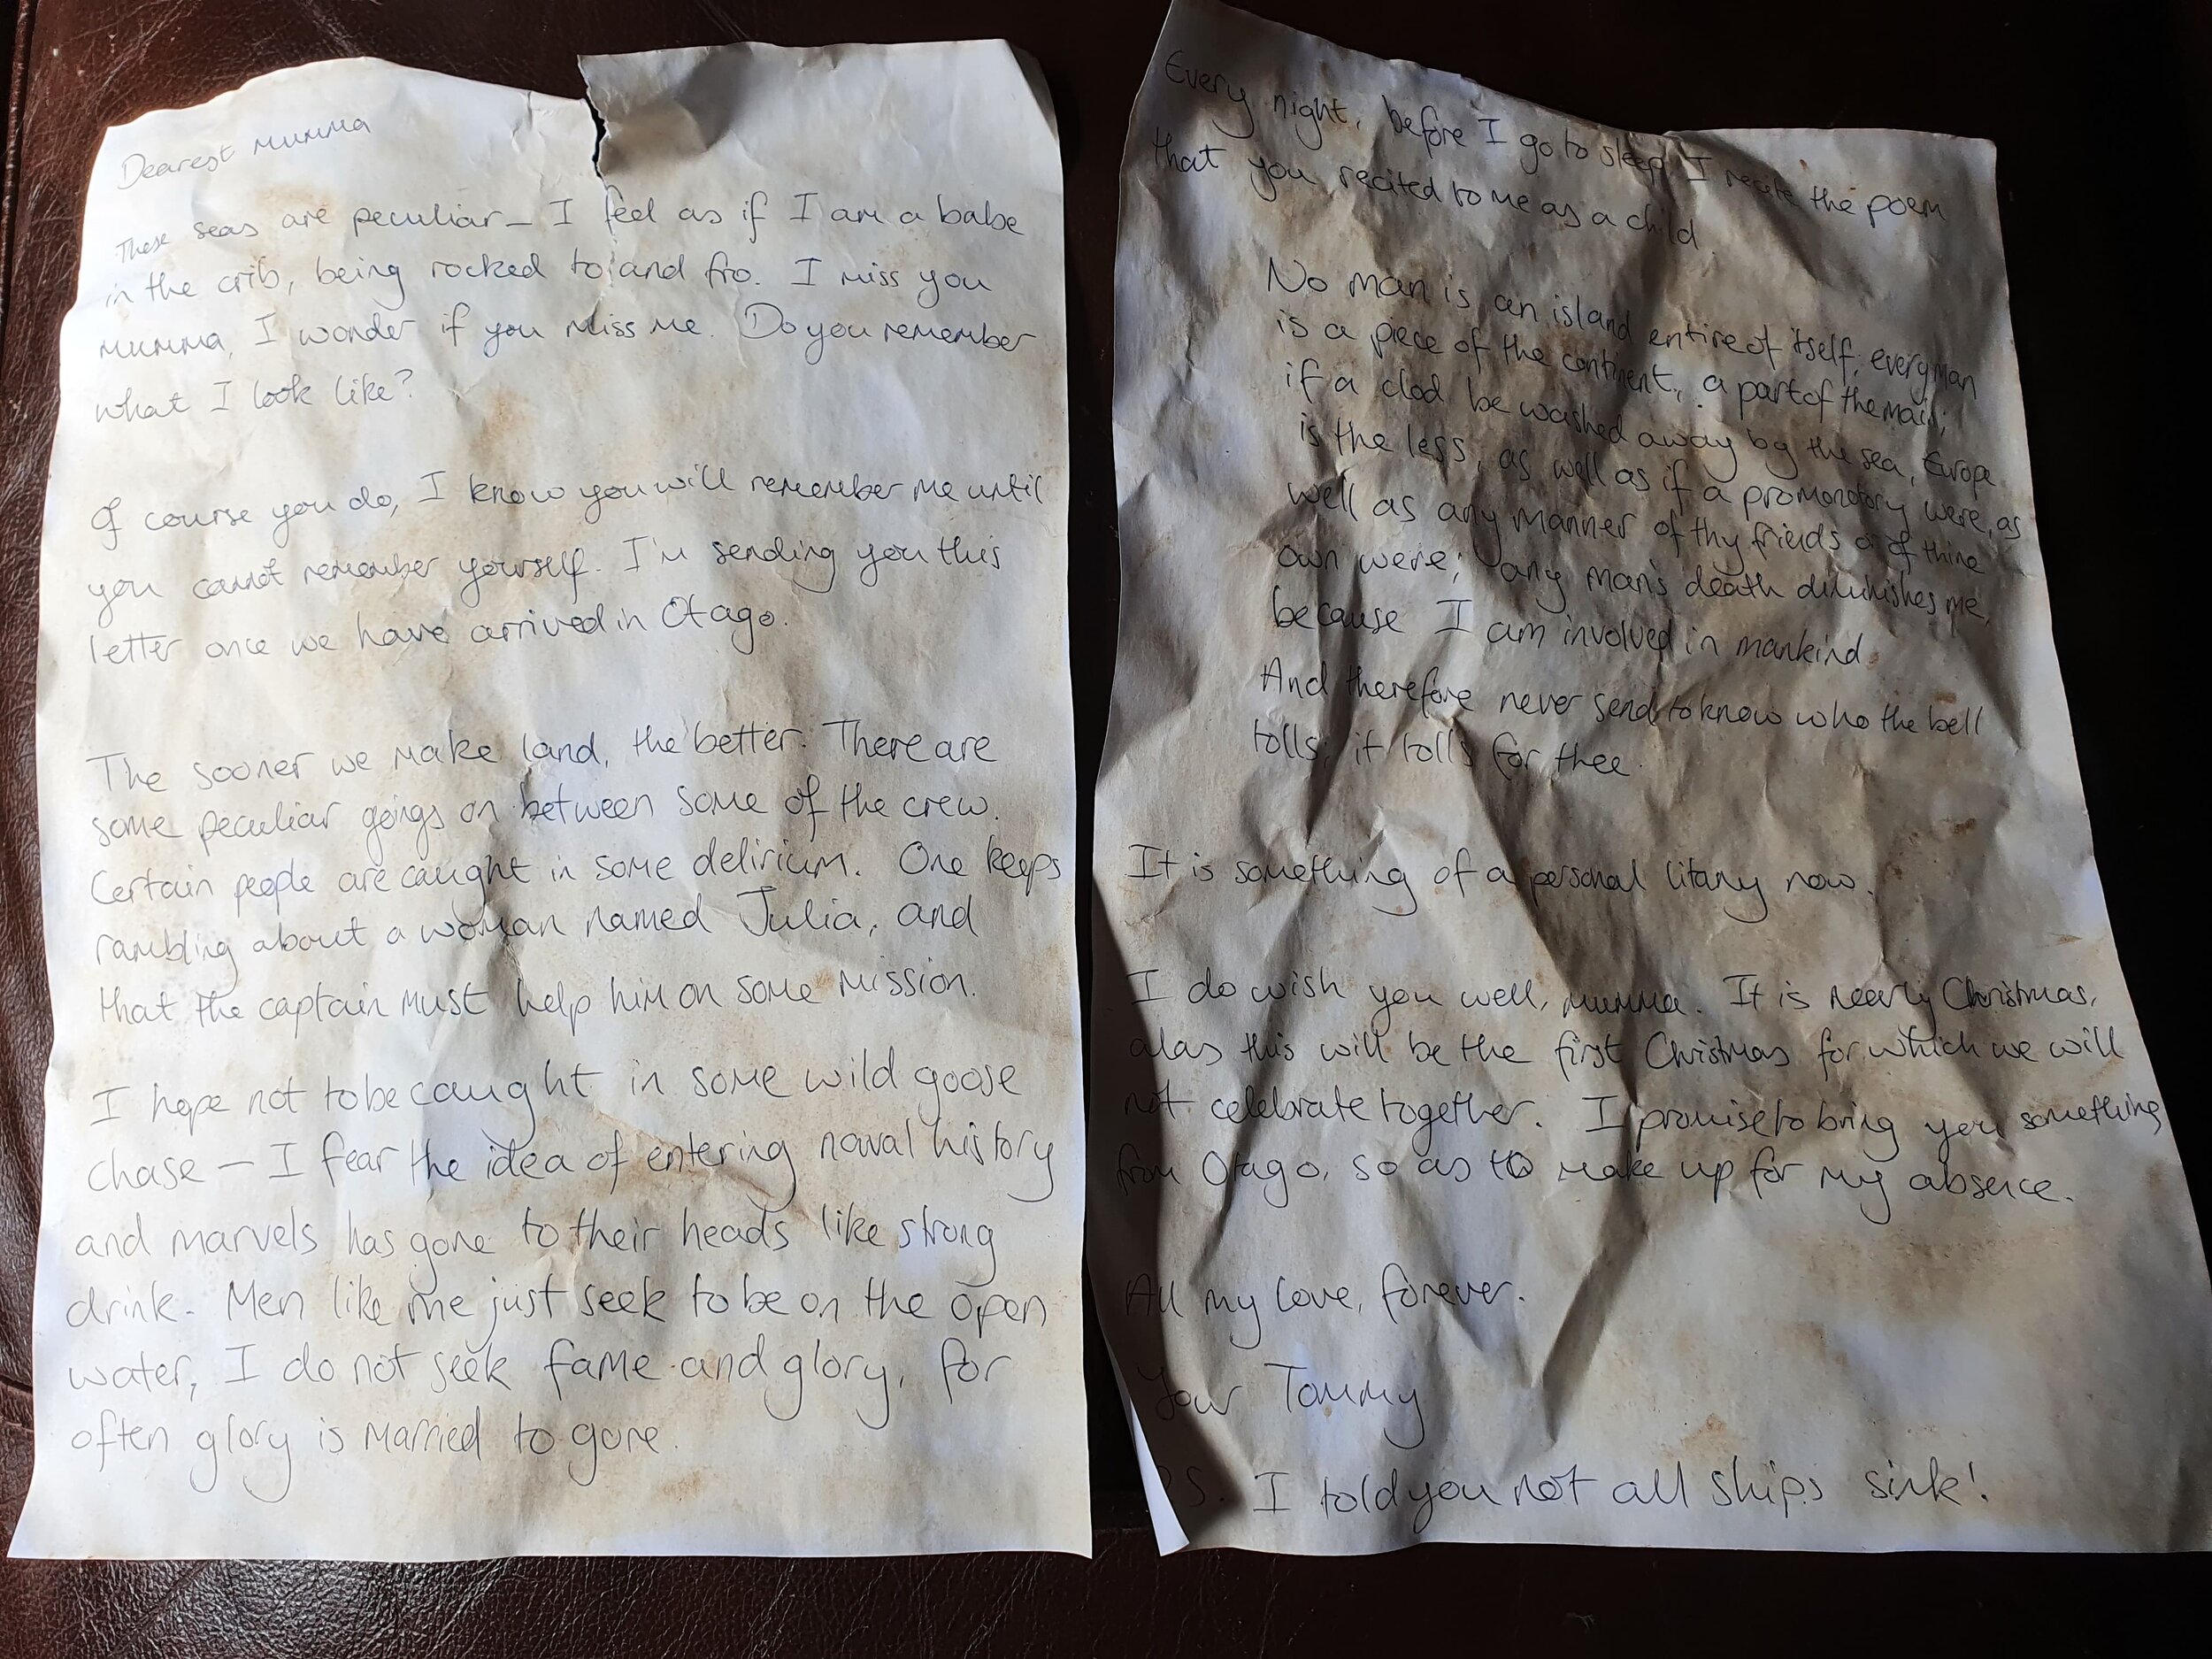 Dearest Mumma
These seas are peculiar – I feel as if I am a babe
in the crib, being rocked to and fro. I miss you
Mumma, I wonder if you miss me. Do you remember
what I look like?
Of course you do, I know you will remember me until
you cannot remember yourself. I'm sending you this
letter once we have arrived in Otago.
The sooner we make land, the better. There are
some peculiar goings on between some of the crew.
Certain people are caught in some delirium. One keeps
rambling about a woman named Julia, and
that the captain must help him on some mission.
I hope not to be caught in some wild goose
chase – I fear the idea of entering naval history
and marvels has gone to their heads like strong
drink. Men like me just seek to be on the open
water, I do not seek fame and glory, for
often glory is married to gore.
Every night, before I go to sleep I recite the poem
that you recited to me as a child.
No man is an island entire of itself; every man
is a piece of the continent, a part of the main;
if a clod be washed away by the sea, Europe
is the less, as well as if a promontory were, as
well as any manner of thy friends or of thine
own were; any man's death diminishes me,
because I am involved in mankind.
And therefore never send to know who the bell
tolls; it tolls for thee.
It is something of a personal litany now.
I do wish you well, mumma. It is nearly Christmas,
alas this will be the first Christmas for which we will
not celebrate together. I promise to bring you something
from Otago, so as to make up for my absence.
All my love, forever.
Your Tommy
PS. I told you not all ships sink!